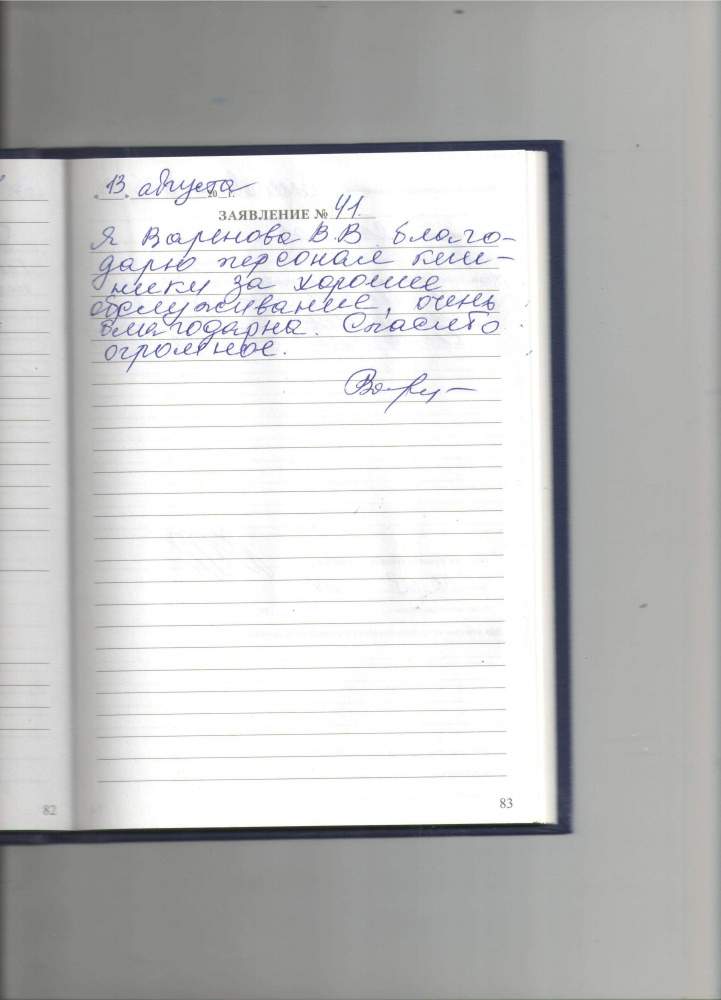 13. августа 20 г.
ЗАЯВЛЕНИЕ № 41
Я Варенова В.В. благо-
дарю персонал кли-
ники за хорошее
обслуживание, очень
благодарна. Спасибо
огромное.
82
83